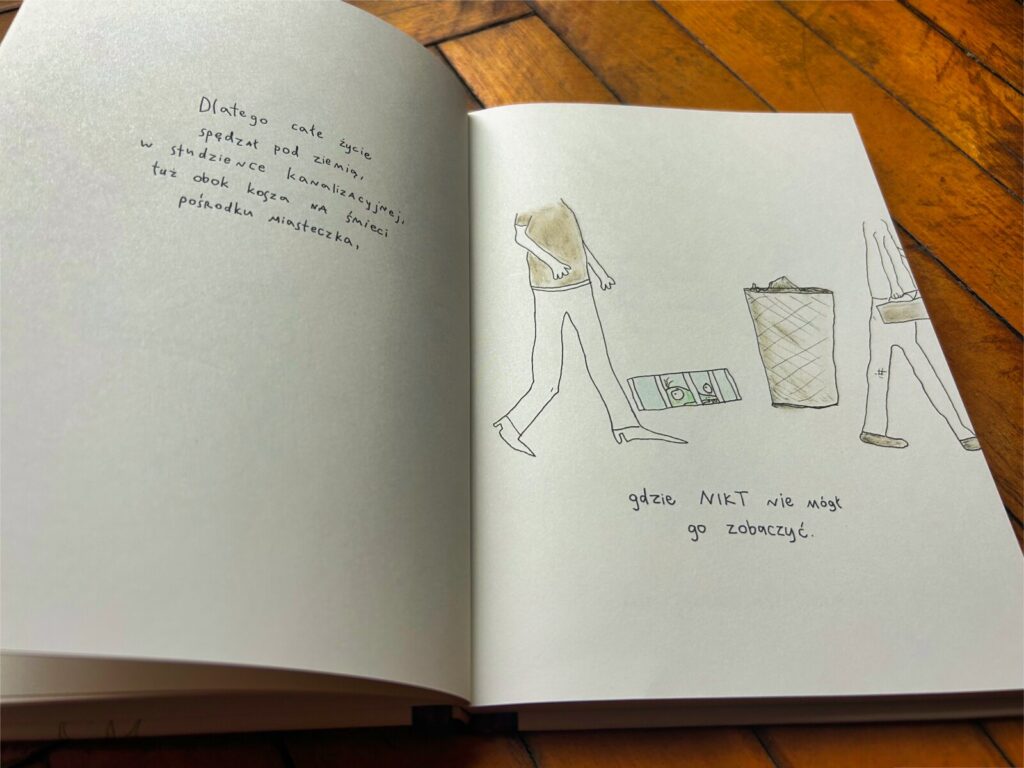 Dlatego całe życie
spędzał pod ziemią,
w studzience kanalizacyjnej,
tuż obok kosza na śmieci
pośrodku miasteczka,
gdzie NIKT nie mógł
go zobaczyć.